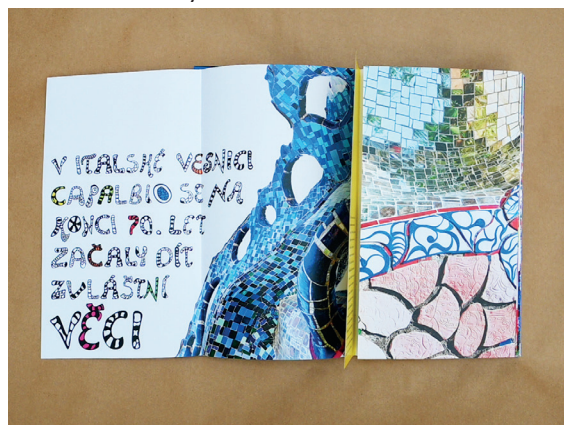 V ITALSKÉ VESNICI
CAPALBIO SE NA
KONCI 70. LET
ZAČALY DÍT
ZVLÁŠTNÍ
VĚCI